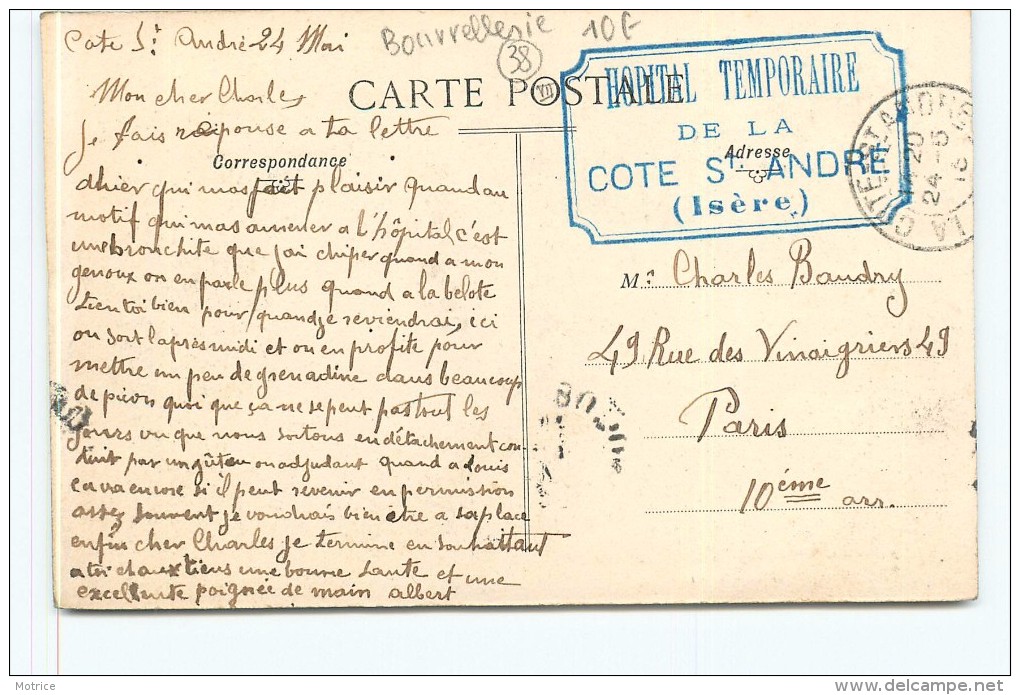 Cote St André 24 Mai
Bourrellerie 10F
38
Mon cher Charles
CARTE POSTALE
VII
HOPITAL TEMPORAIRE
DE LA
COTE ST. ANDRÉ
(Isère)
Je fais réponse a ta lettre
Correspondance
Adresse
dhier qui mas fait plaisir quand au
motif qui mas amener a l'hôpital c'est
une bronchite que jai chiper quand a mon
genoux on en parle plus quand a la belote
tien toi bien pour quand je reviendrai, ici
on sort laprès midi et on en profite pour
mettre un peu de grenadine dans beaucoup
de quoi que ça ne se peut pas tout les
jours vu que nous sortons en détachement con
duit par un ou adjudant quand a Louis
ca va encore si il peut revenir en permission
assez souvent je voudrais bien être a sa place
enfin cher Charles je termine en souhaitant
a toi et aux tiens une bonne santé et une
excellente poignée de main albert
Mr. Charles Baudry
49 Rue des Vinaigriers 49
Paris
10éme arr.
LA COTE-ST-ANDRÉ
14 20
24 -5
Motrice
delcampe.net